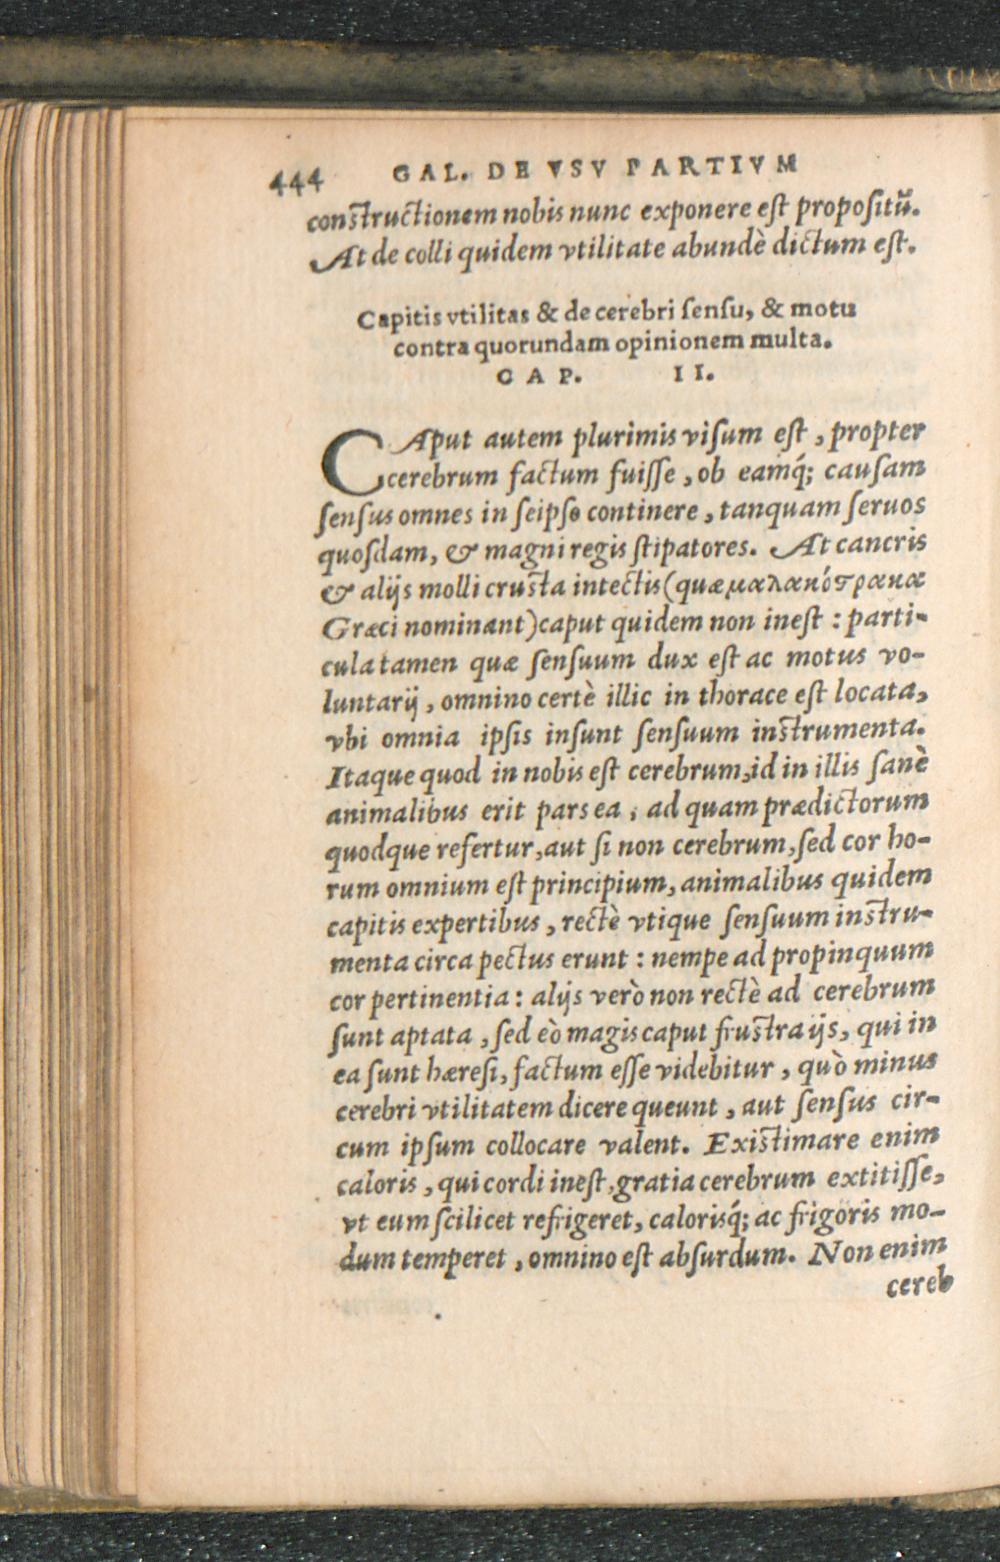 444 GAL. DE VSV PARTIVM
constructionem nobis nunc exponere est propositũ.
At de colli quidem vtilitate abundè dictum est.
Capitis vtilitas & de cerebri sensu, & motu
contra quorundam opinionem multa.
CAP. II.
CAput autem plurimis visum est, propter
cerebrum factum fuisse, ob eamq́; causam
sensus omnes in seipso continere, tanquam seruos
quosdam, & magni regis stipatores. At cancris
& alijs molli crusta intectis (quæ μαλακόςρακα
Græci nominant) caput quidem non inest: parti-
cula tamen quæ sensuum dux est ac motus vo-
luntarij, omnino certè illic in thorace est locata,
vbi omnia ipsis insunt sensuum instrumenta.
Itaque quod in nobis est cerebrum, id in illis sanè
animalibus erit pars ea, ad quam prædictorum
quodque refertur, aut si non cerebrum, sed cor ho-
rum omnium est principium, animalibus quidem
capitis expertibus, rectè vtique sensuum instru-
menta circa pectus erunt: nempe ad propinquum
cor pertinentia: alijs verò non rectè ad cerebrum
sunt aptata, sed eò magis caput frustra ijs, qui in
ea sunt hæresi, factum esse videbitur, quò minus
cerebri vtilitatem dicere queunt, aut sensus cir-
cum ipsum collocare valent. Existimare enim
caloris, qui cordi inest, gratia cerebrum extitisse,
vt eum scilicet refrigeret, calorisq́; ac frigoris mo-
dum temperet, omnino est absurdum. Non enim
cereb